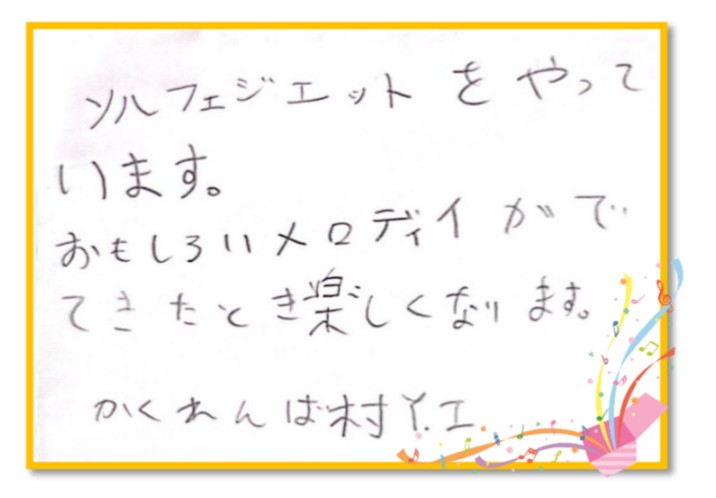 ソルフェジエットをやって
います。
おもしろいメロディイがで
てきたとき楽しくなります。
かくれんぼ村 Y.I